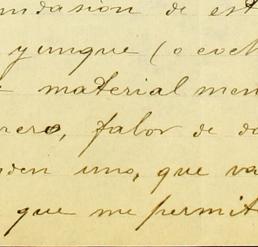 ndasion de est
y unque (o coch
material men
rero, falor de do
nden uno, que va
que me permit